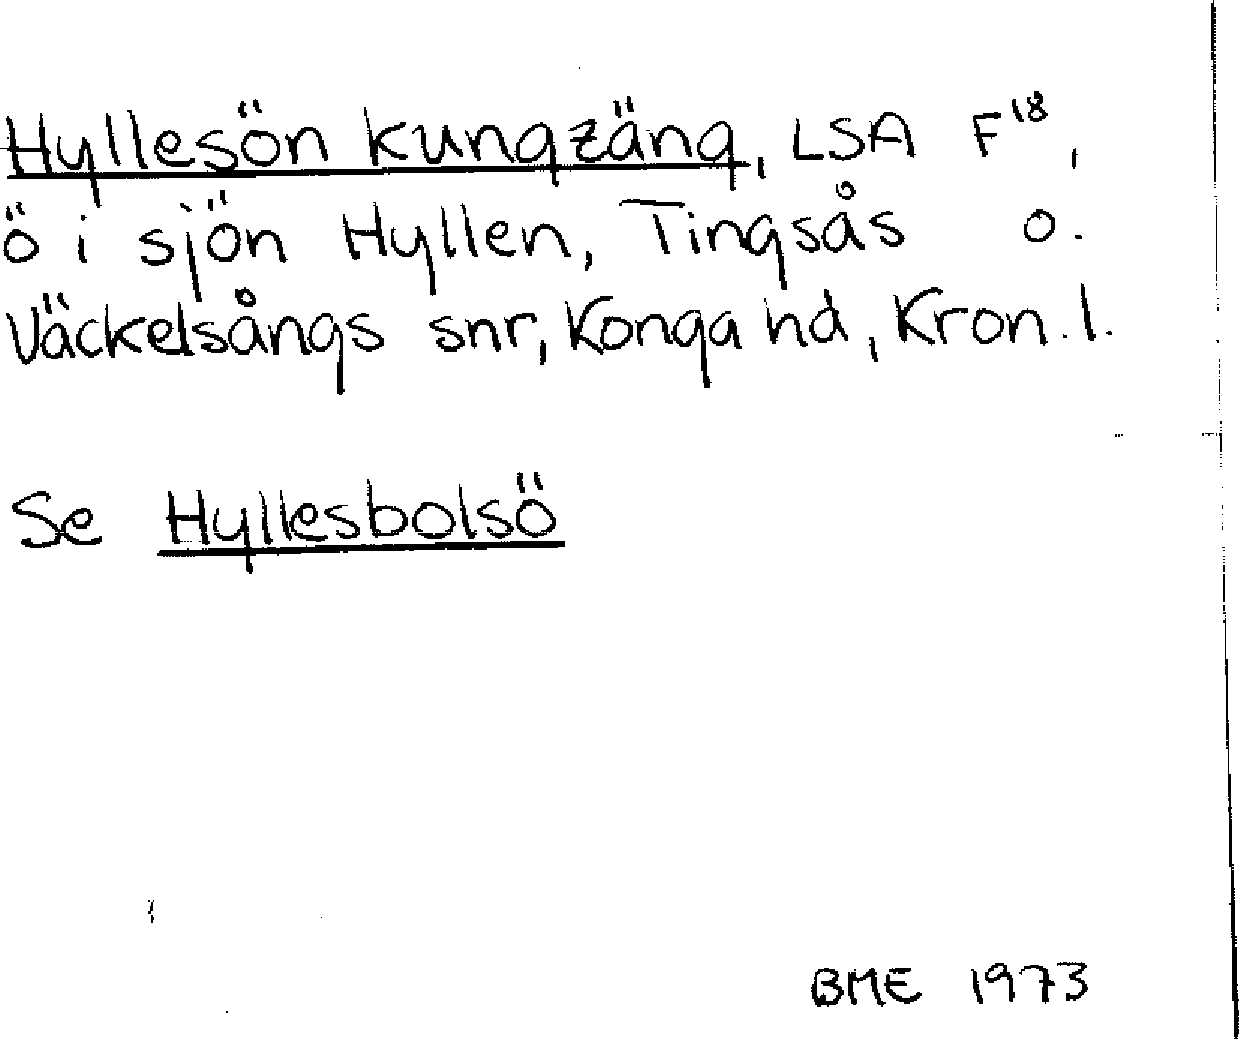 Hyllesön kungzäng, LSA F¹⁸,
ö i sjön Hyllen, Tingsås o.
Väckelsångs snr, Konga hd, Kron. l.
Se Hyllesbolsö
BME 1973